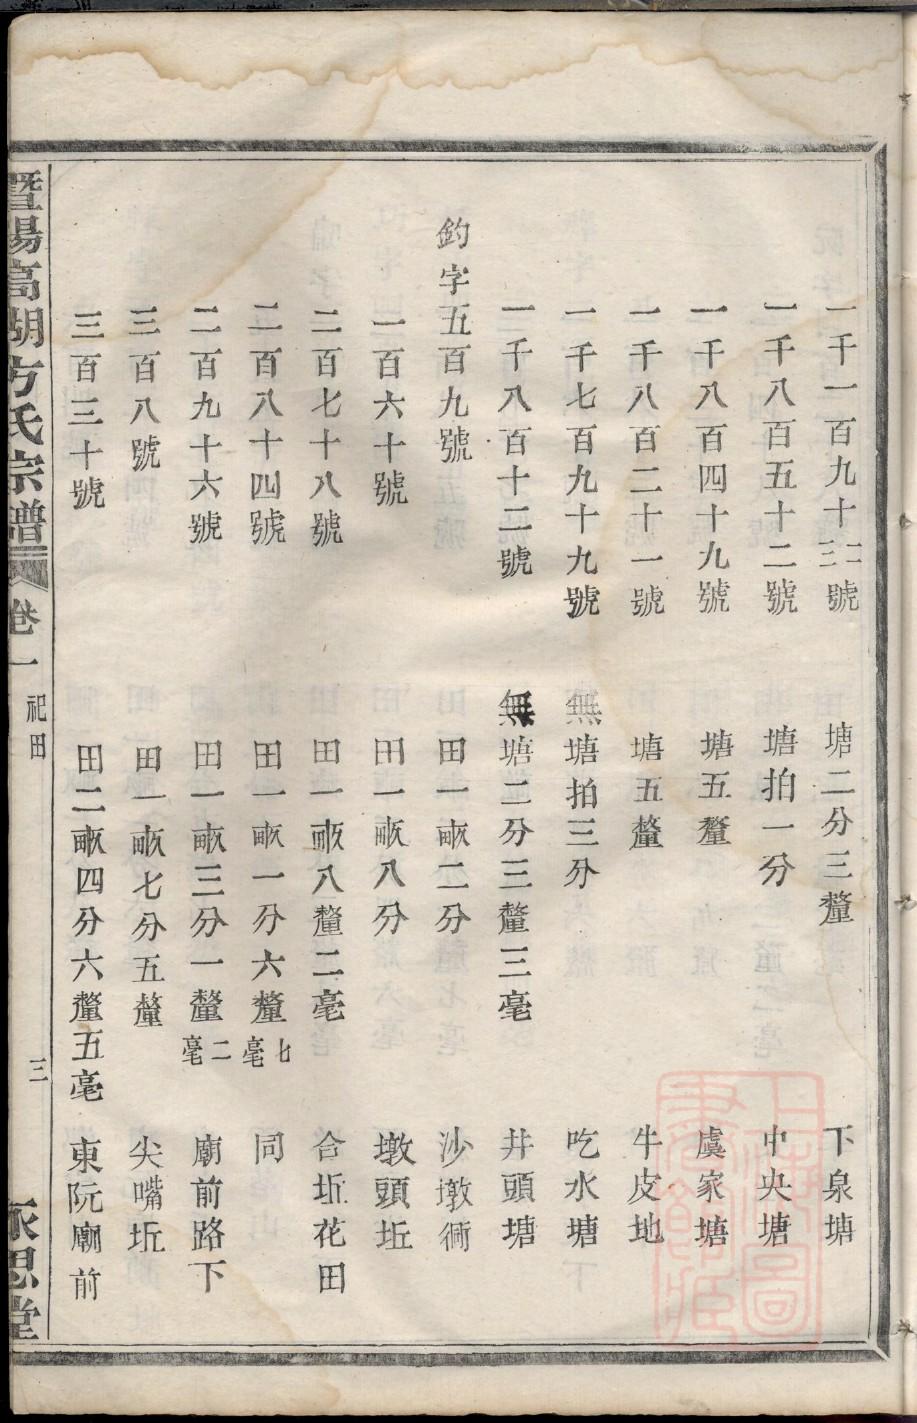 一千一百九十三號 塘二分三釐 下泉塘
一千八百五十二號 塘拍一分 中央塘
一千八百四十九號 塘五釐 虞家塘
一千八百二十一號 塘五釐 牛皮地
一千七百九十九號 無塘拍三分 吃水塘
一千八百十二號 無塘二分三釐三毫 井頭塘
鈞字五百九號 田一畝二分 沙墩衕
一百六十號 田一畝八分 墩頭坵
二百七十八號 田一畝八釐二毫 合坵花田
二百八十四號 田一畝一分六釐七毫 同
二百九十六號 田一畝三分一釐二毫 廟前路下
三百八號 田一畝七分五釐 尖嘴坵
三百三十號 田二畝四分六釐五毫 東阮廟前
暨陽高湖方氏宗譜 卷一 祀田 三 永思堂